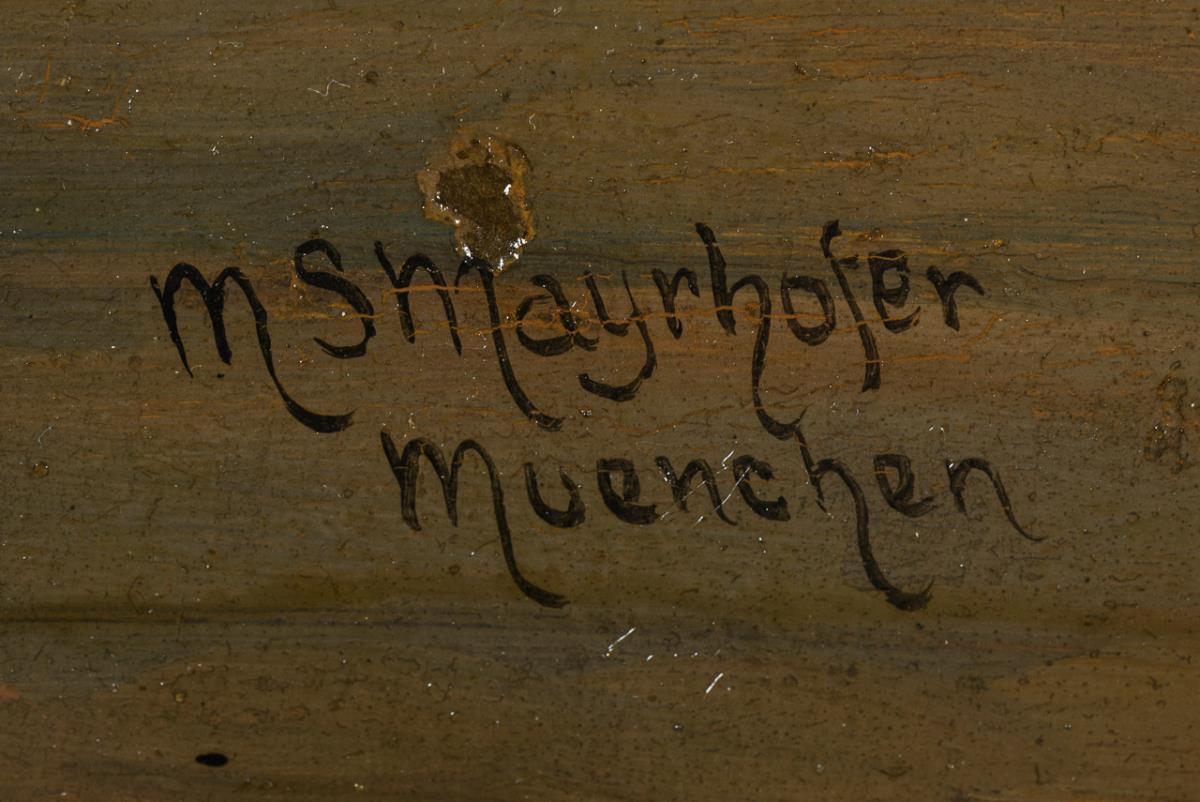 M S Mayrhofer
Muenchen